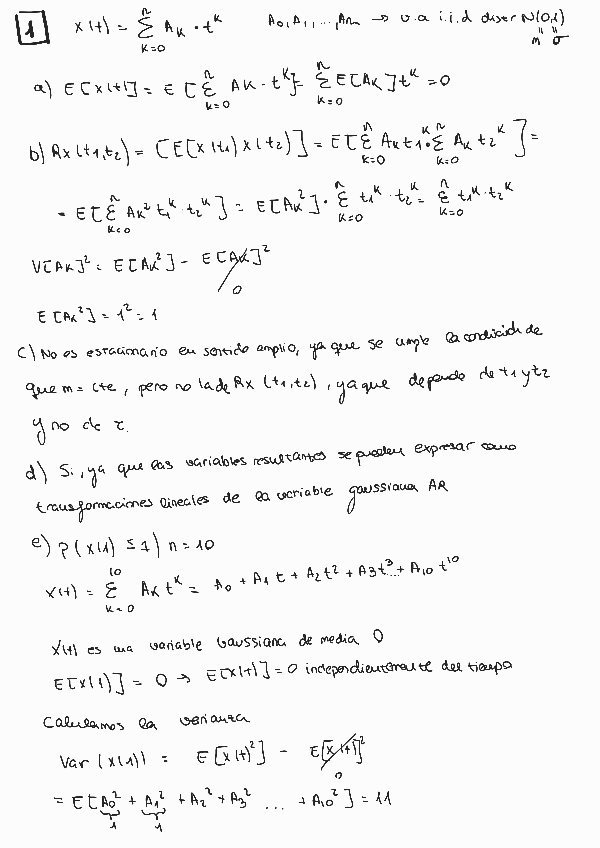 1 X(t) = Σ_{k=0}^{n} A_k · t^k A_0, A_1, ..., A_n → v.a i.i.d distr N(0,1)
m σ
a) E[X(t)] = E[Σ_{k=0}^{n} A_k · t^k] = Σ_{k=0}^{n} E[A_k] t^k = 0
b) R_X(t_1,t_2) = [E[X(t_1) X(t_2)] = E[Σ_{k=0}^{n} A_k t_1^k · Σ_{k=0}^{n} A_k t_2^k] =
= E[Σ_{k=0}^{n} A_k^2 t_1^k · t_2^k] = E[A_k^2] · Σ_{k=0}^{n} t_1^k · t_2^k = Σ_{k=0}^{n} t_1^k · t_2^k
V[A_k]^2 = E[A_k^2] - E[A_k]^2
0
E[A_k^2] = 1^2 = 1
c) No es estacionario en sentido amplio, ya que se cumple la condición de
que m = cte, pero no la de R_X (t_1,t_2), ya que depende de t_1 y t_2
y no de τ.
d) Si, ya que las variables resultantes se pueden expresar como
transformaciones lineales de la variable gaussiana A_k
e) P(X(1) ≤ 1) n = 10
X(t) = Σ_{k=0}^{10} A_k t^k = A_0 + A_1 t + A_2 t^2 + A_3 t^3 ... + A_10 t^10
X(t) es una variable Gaussiana de media 0
E[X(1)] = 0 → E[X(t)] = 0 independientemente del tiempo
Calculamos la varianza
Var (X(1)) = E[X(t)^2] - E[X(t)]^2
0
= E[A_0^2 + A_1^2 + A_2^2 + A_3^2 ... + A_10^2] = 11
1 1